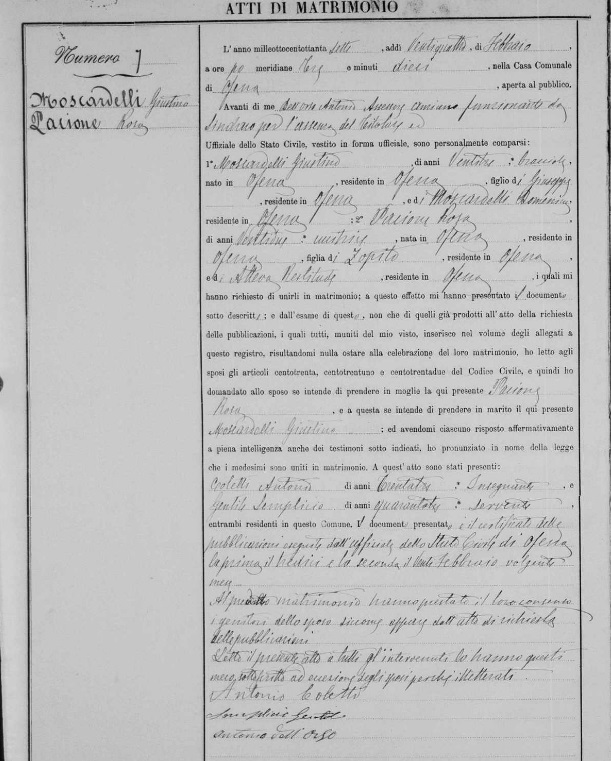 ATTI DI MATRIMONIO
Numero 7
Moscardelli Giustino
Pacione Rosa
L'anno milleottocentottanta sette, addì Ventiquattro di Febbraio,
a ore po meridiane tre e minuti dieci, nella Casa Comunale
di Ofena, aperta al pubblico.
Avanti di me Antonio funzionante da
Sindaco per l'assenza del Titolare ed
Uffiziale dello Stato Civile, vestito in forma uffiziale, sono personalmente comparsi:
1º Moscardelli Giustino, di anni,
nato in Ofena, residente in Ofena, figlio di Giuseppe
, residente in Ofena, e di Moscardelli Domenica
residente in Ofena; 2º Pacione Rosa,
di anni, nata in Ofena, residente in
Ofena, figlia di Zopito, residente in Ofena,
e di residente in Ofena, i quali mi
hanno richiesto di unirli in matrimonio; a questo effetto mi hanno presentato i documenti
sotto descritti; e dall'esame di questi, non che di quelli già prodotti all'atto della richiesta
delle pubblicazioni, i quali tutti, muniti del mio visto, inserisco nel volume degli allegati a
questo registro, risultandomi nulla ostare alla celebrazione del loro matrimonio, ho letto agli
sposi gli articoli centotrenta, centotrentuno e centotrentadue del Codice Civile, e quindi ho
domandato allo sposo se intende di prendere in moglie la qui presente Pacione
Rosa, e a questa se intende di prendere in marito il qui presente
Moscardelli Giustino; ed avendomi ciascuno risposto affermativamente
a piena intelligenza anche dei testimoni sotto indicati, ho pronunziato in nome della legge
che i medesimi sono uniti in matrimonio. A quest'atto sono stati presenti:
Coletti Antonio di anni trentatre, Insegnante e
Gentile Semplicio di anni, servente,
entrambi residenti in questo Comune. I documenti presentati è il certificato delle
pubblicazioni eseguite dall'Uffiziale dello Stato Civile di Ofena
la prima il tredici e la seconda il venti Febbraio volgente
mese.
Al predetto matrimonio hanno prestato il loro consenso
i genitori dello sposo siccome appare dall'atto di richiesta
delle pubblicazioni
Letto il presente atto a tutti gl'intervenuti lo hanno questi
meco sottoscritto ad eccezione degli sposi perchè illetterati
Antonio Coletti
Semplicio Gentile
Antonio dell'Orso